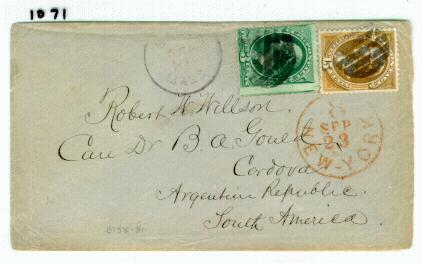 1071
MASS
SEP
23
NEW-YORK
15
Robert W. Willson.
Care Dr B. A. Gould
Cordova
Argentine Republic.
South America.